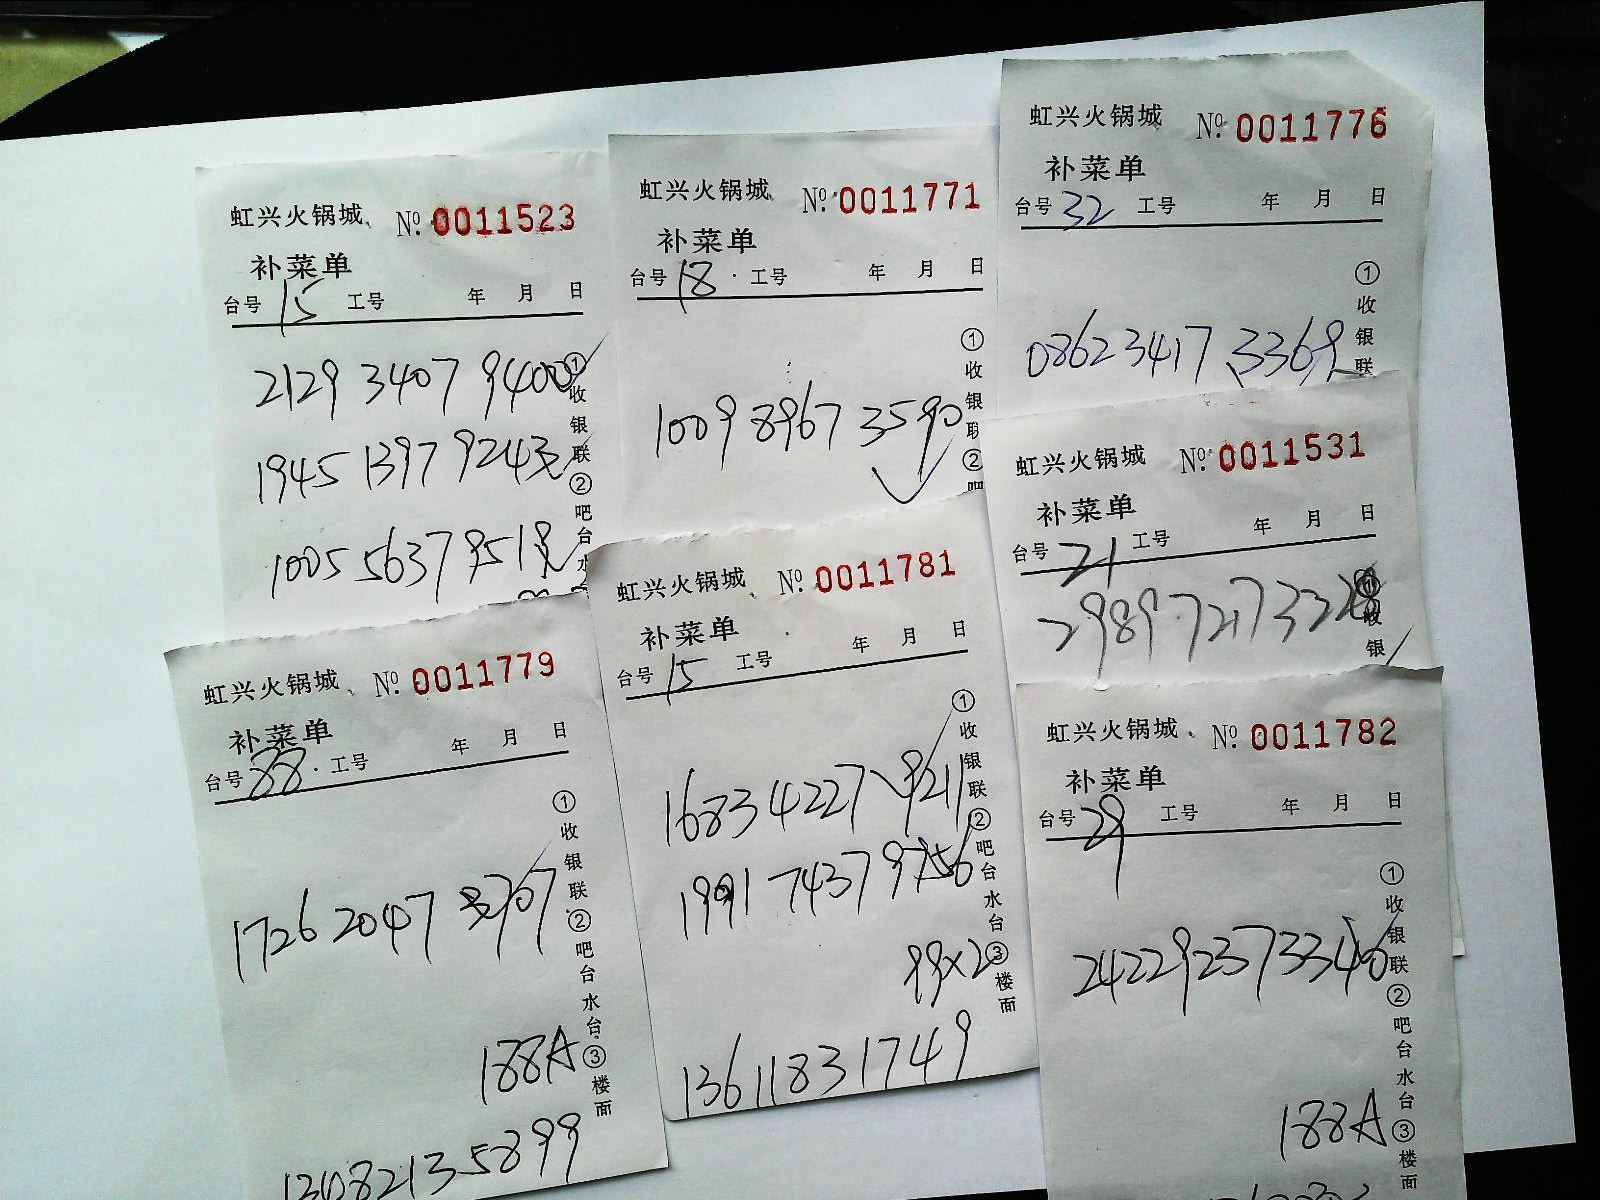 虹兴火锅城 №: 0011523
补菜单
台号 15 工号 年 月 日
2129 3407 9400
1945 1397 9243
1005 5637 9519
①收银联②吧台水
虹兴火锅城 №: 0011771
补菜单
台号 18 工号 年 月 日
1009 8967 3590
①收银联②吧
虹兴火锅城 №: 0011776
补菜单
台号 32 工号 年 月 日
0862 3417 3369
①收银联
虹兴火锅城 №: 0011531
补菜单
台号 21 工号 年 月 日
2989 7217 3328
①收银
虹兴火锅城 №: 0011779
补菜单
台号 88 工号 年 月 日
1726 2047
188A
①收银联②吧台水台③楼面
虹兴火锅城 №: 0011781
补菜单
台号 15 工号 年 月 日
1683 4227 9211
1991 7437 9756
99×2
13611831749
①收银联②吧台水台③楼面
虹兴火锅城 №: 0011782
补菜单
台号 29 工号 年 月 日
242292373346
188A
①收银联②吧台水台③楼面